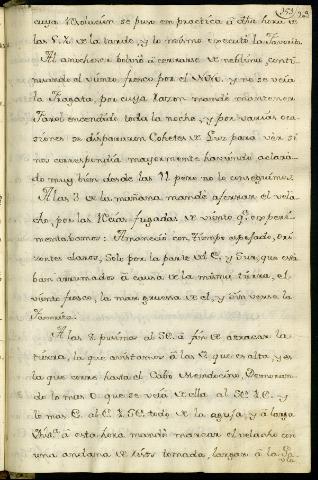 cuya Resolucion se puso em practica â dha hora de
las 5½ de la tarde, y lo mismo executó la Favorita.
Al anochecer bolvió â cerrarse de neblina, conti-
nuando el viento fresco por el NO, y no se veia
la Fragata, por cuya razon mandé mantener
Farol encendido toda la noche, y por varias oca-
ziones se dispararon Cohetes de Luz para ver si
nos correspondia mayormente haviendo aclara-
do muy bien desde las 11 pero no lo conseguimos.
A las 3 de la mañana mandé aferrar el vela-
cho, por las Recias fugadas de viento q.e experi-
mentabamos: Amaneció con tiempo despejado, ori-
zontes claros, solo por la parte del E, y Sur, que esta
ban arrumados â causa de la misma tierra, el
viento fresco, la mar gruesa de el, y sin verse la
Favorita.
A las 8 pusimos al SE. â fin de atracar la
tierra, la que avistamos â las 9 que es alta, y es
la que corre hasta el Cabo Mendocino, Demoran-
do lo mas O. que se veia de ella al
lo mas E. al E ¼ SE. todo de la aguja, y â larga
Dist.a â esta hora mandé marear el velacho con
una andana de rizos tomada, largar â la